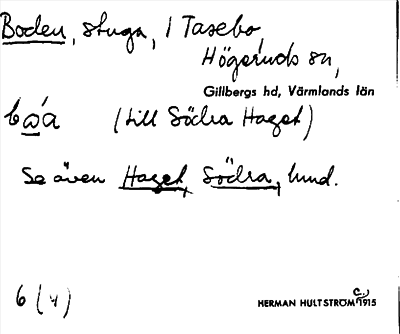 Boden, stuga, i Tasebo,
Högeruds sn,
Gillbergs hd, Värmlands län
(till Södra Haget)
Se även Haget, Södra, hmd.
6 (4)
HERMAN HULTSTRÖM C:a 1915